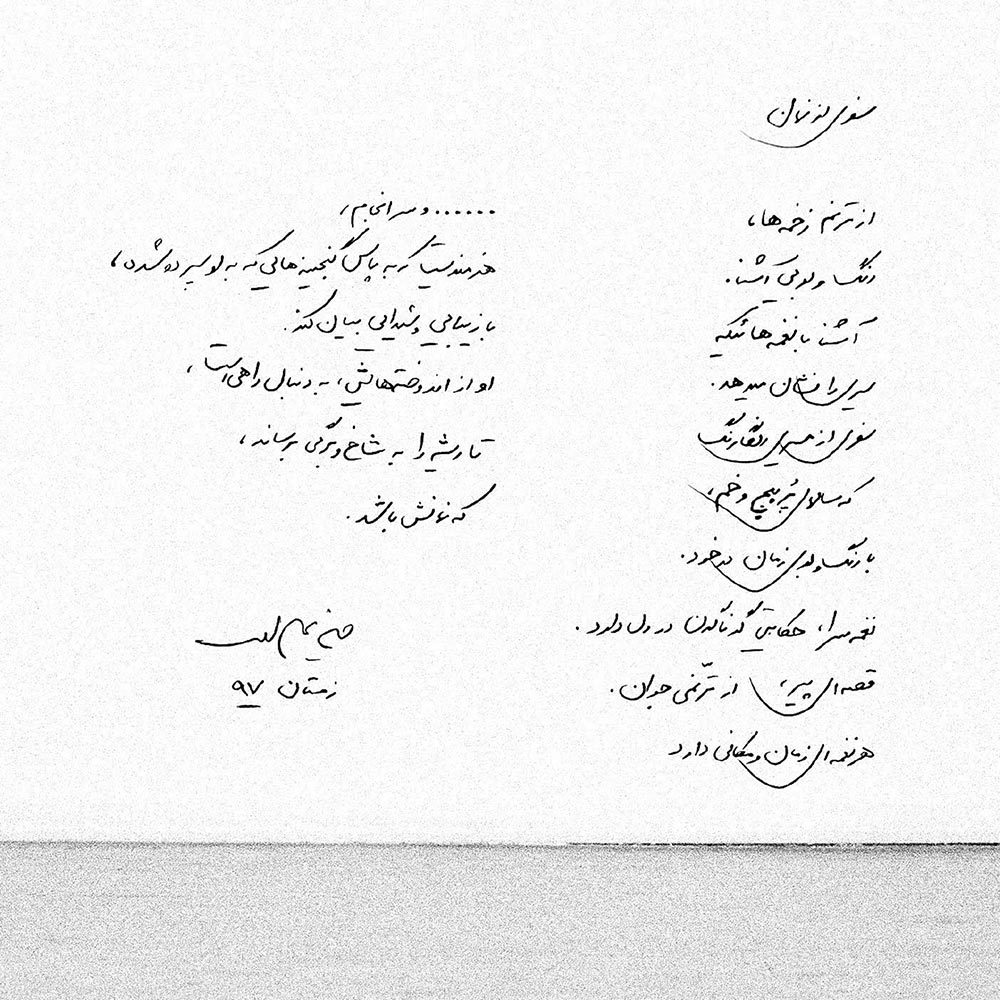 سفری در زمان
از ترنم زخمه‌ها،
رنگ و بویی آشنا.
آشنا با نغمه‌هائیکه
سیری را نشان میدهد.
سفری از مسیری رنگارنگ
که سالهای پُر پیچ و خم،
با رنگ و بوی زمان خود.
نغمه سرا، حکایتی گوناگون در دل دارد.
قصه‌ای پیر، از ترنّمی جوان.
هر نغمه‌ای زمان و مکانی دارد
...... و سرانجام،
هنرمندیست که به پاس گنجینه‌هایی که به او سپرده شده،
با زیبایی و شیدایی بیان کند.
او از اندوخته‌هایش، به دنبال راهی است،
تا ریشه را به شاخ و برگی برساند،
که نمانش باشد.
زمستان ۹۷